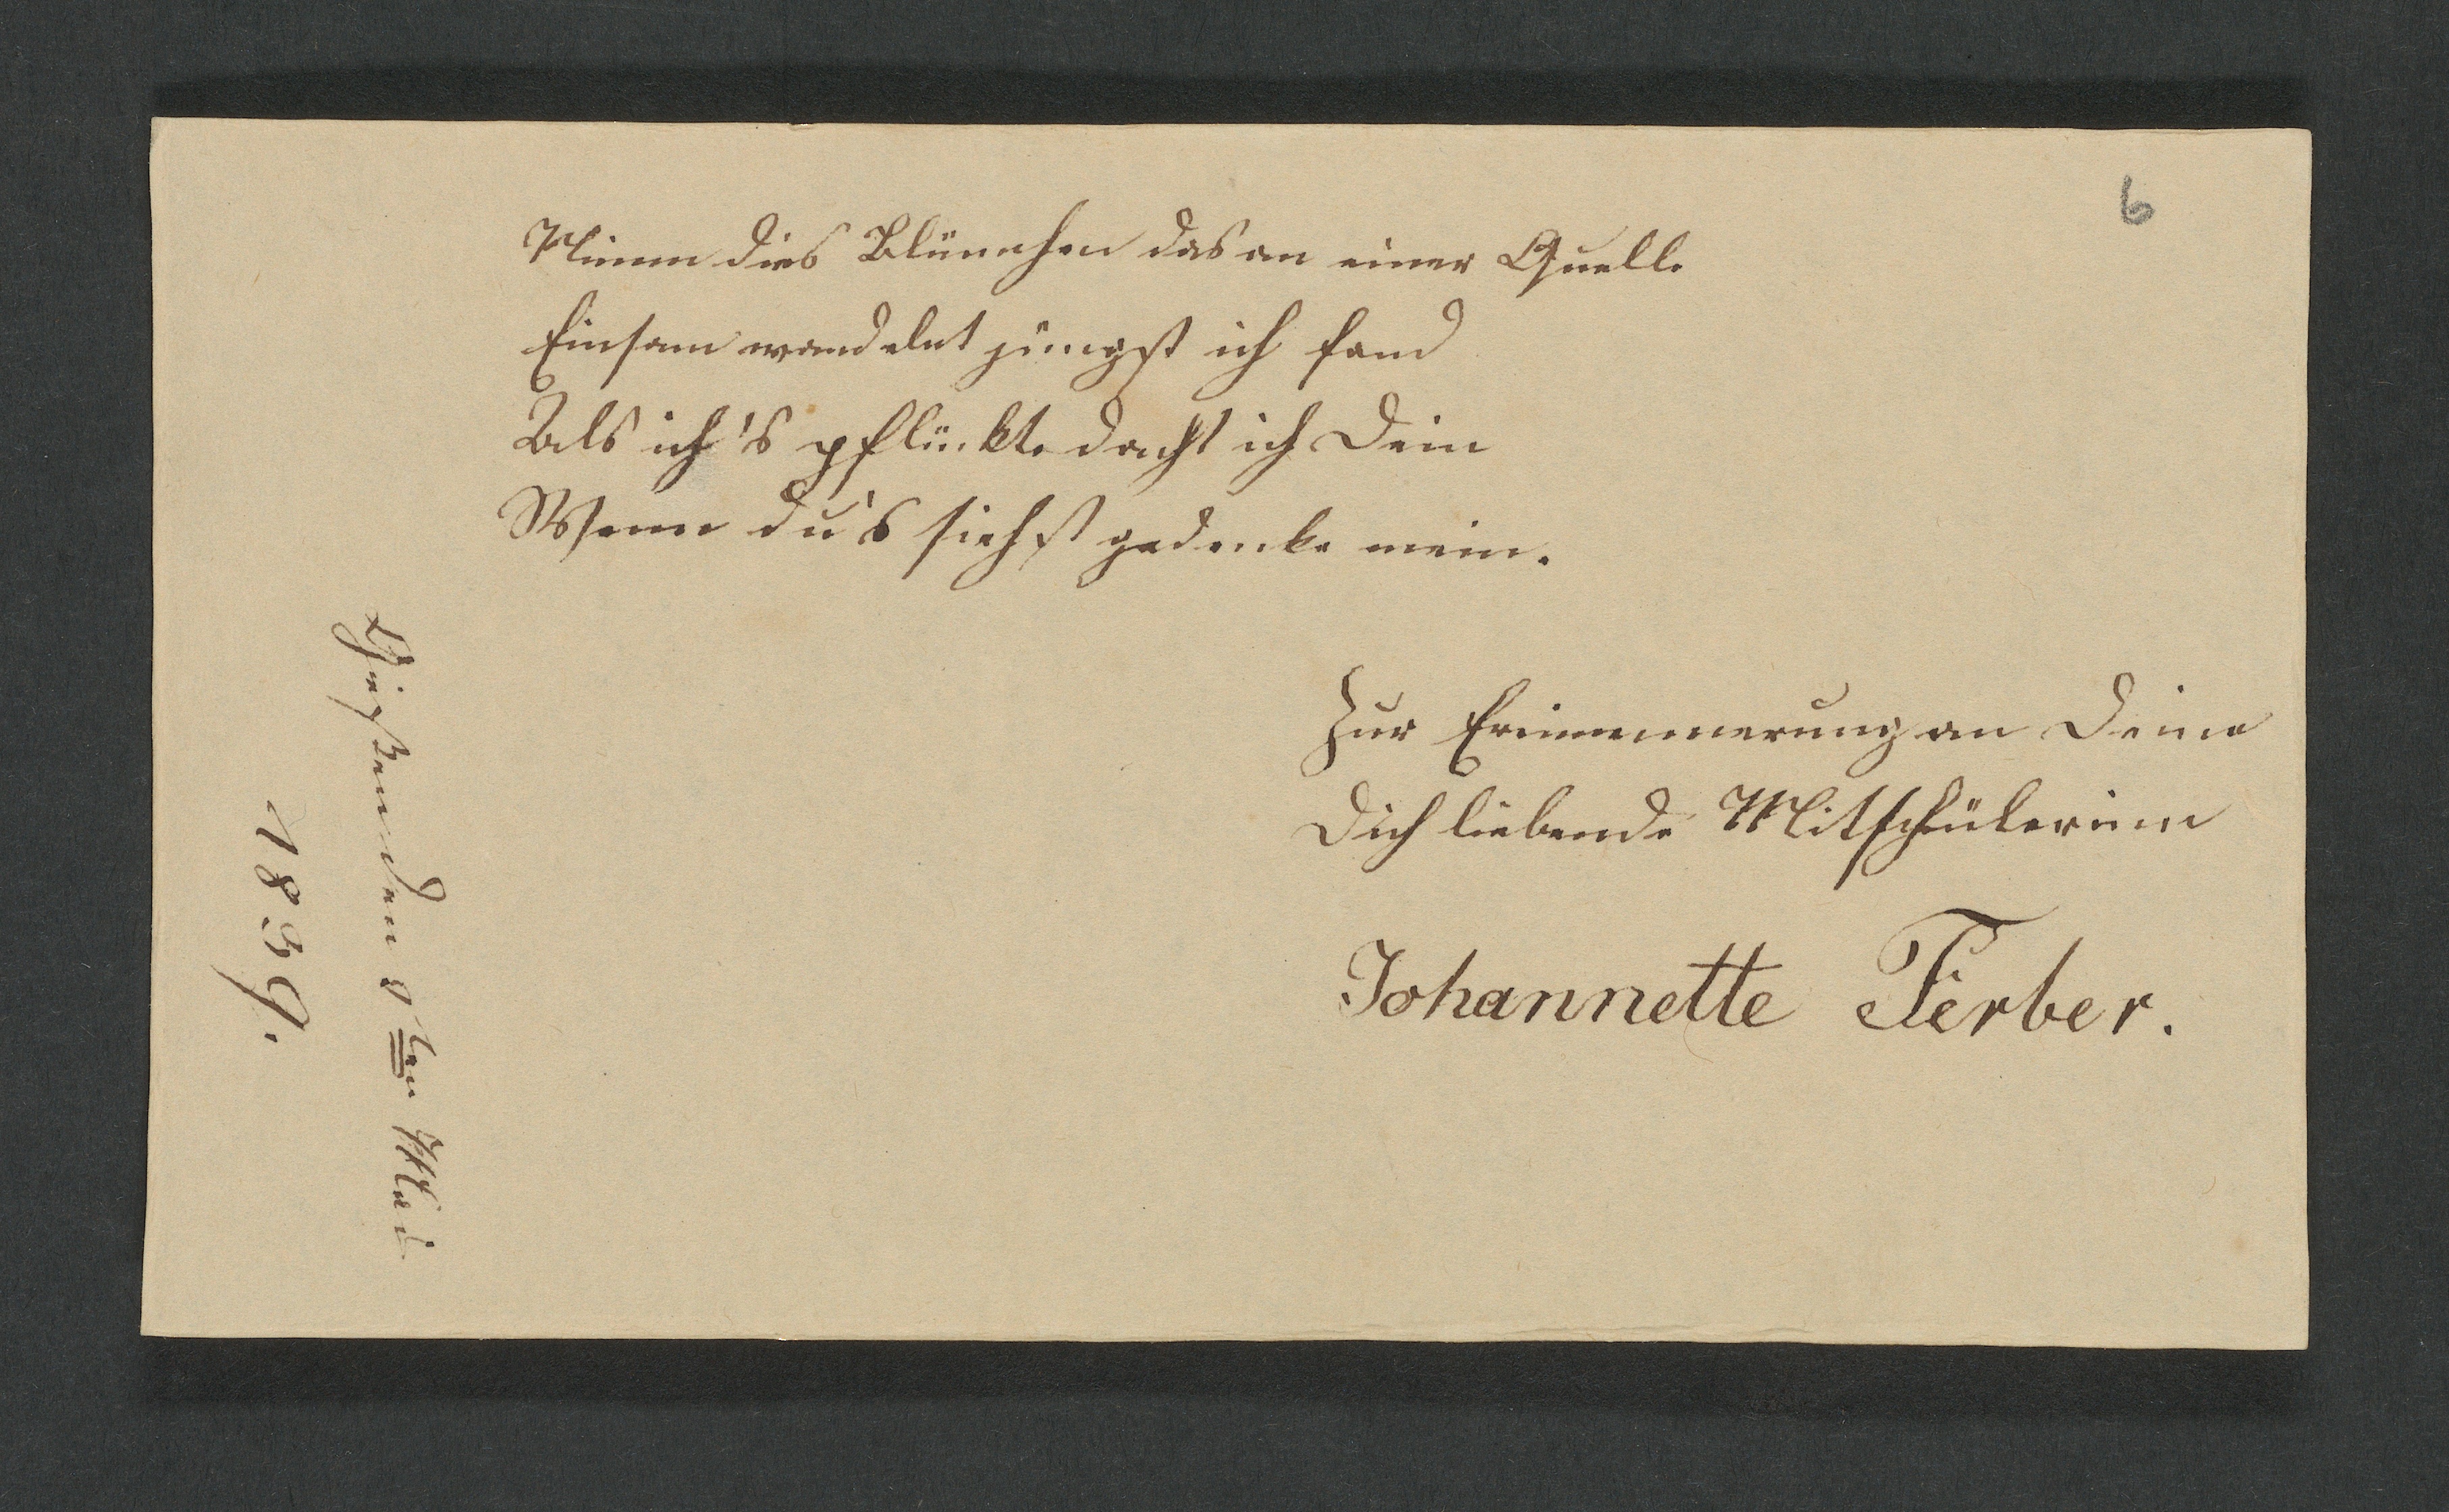 6
Nimm dies Blümchen das an einer Quelle
Einsam wandelnt jüngst ich fand
Als ich's pflückte dacht ich Dein
Wenn du's siehst gedenke mein.
Zur Erinnerung an Deine
Dich liebende Mitschülerinn
Johannette Ferber.
Gießen den 8ten Mai
1839.